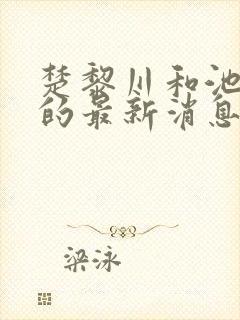 楚黎川和池
的最新消息
梁泳